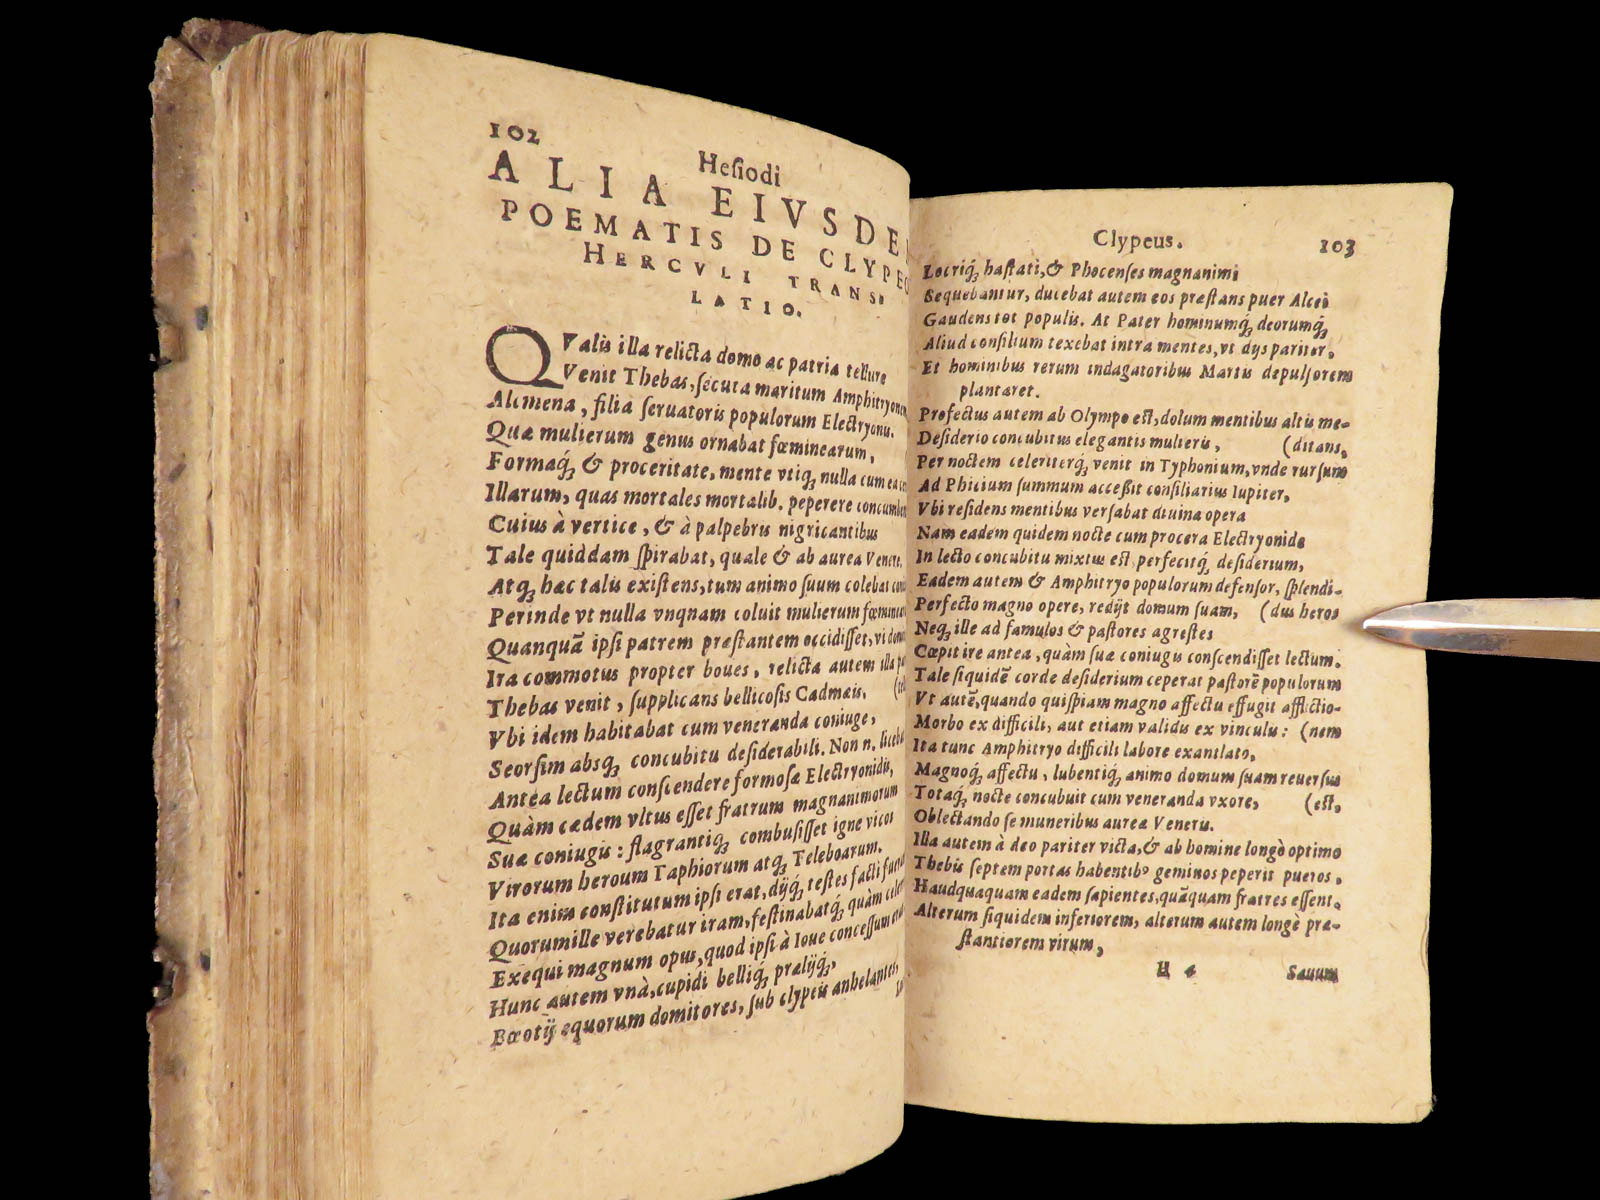 102
Hesiodi
ALIA EIVSDE
POEMATIS DE CLYPEO
HERCVLI TRANS-
LATIO.
QValis illa relicta domo ac patria tellure
Venit Thebas, secuta maritum Amphitryonem
Alcmena, filia seruatoris populorum Electryonis.
Quæ mulierum genus ornabat fœminearum,
Formaq́; & proceritate, mente vtiq́; nulla cum ea
Illarum, quas mortales mortalib. peperere
Cuius à vertice, & à palpebris nigricantibus
Tale quiddam spirabat, quale & ab aurea Venere.
Atq́; hæc talis existens, tum animo suum colebat
Perinde vt nulla vnqnam coluit mulierum
Quanquã ipsi patrem præstantem occidisset, vi
Ira commotus propter boues, relicta autem illa
Thebas venit, supplicans bellicosis Cadmæis.
Vbi idem habitabat cum veneranda coniuge,
Seorsim absq́; concubitu desiderabili. Non n.
Antea lectum conscendere formosæ Electryonidis,
Quàm cædem vltus esset fratrum magnanimorum
Suæ coniugis: flagrantiq́; combusisset igne vicos
Virorum heroum Taphiorum atq́; Teleboarum.
Ita enim constitutum ipsi erat, dijq́; testes facti
Quorum ille verebatur iram, festinabatq́; quàm
Exequi magnum opus, quod ipsi à Ioue concessum
Hunc autem vnà, cupidi belliq́; prælijq́;,
Bœotij equorum domitores, sub clypeis anhelantes,
Clypeus. 103
Locriq́; hastati, & Phocenses magnanimi
Sequebantur, ducebat autem eos præstans puer Alcei
Gaudens tot populis. At Pater hominumq́; deorumq́;
Aliud consilium texebat intra mentes, vt dys pariter,
Et hominibus rerum indagatoribus Martis depulsorem
plantaret.
Profectus autem ab Olympo est, dolum mentibus altis me-
Desiderio concubitus elegantis mulieris, (ditans,
Per noctem celeriterq́; venit in Typhonium, vnde rursum
Ad Phicium summum acceßit consiliarius Iupiter,
Vbi residens mentibus versabat diuina opera
Nam eadem quidem nocte cum procera Electryonide
In lecto concubitu mixtus est perfecitq́; desiderium,
Eadem autem & Amphitryo populorum defensor, splendi-
Perfecto magno opere, redijt domum suam, (dus heros
Neq́; ille ad famulos & pastores agrestes
Cœpit ire antea, quàm suæ coniugis conscendisset lectum.
Tale siquidẽ corde desiderium ceperat pastorẽ populorum
Vt autẽ, quando quispiam magno affectu effugit afflictio-
Morbo ex difficili, aut etiam validis ex vinculis: (nem
Ita tunc Amphitryo difficili labore exantlato,
Magnoq́; affectu, lubentiq́; animo domum suam reuersus
Totaq́; nocte concubuit cum veneranda vxore, (est,
Oblectando se muneribus aureæ Veneris.
Illa autem à deo pariter victa, & ab homine longè optimo
Thebis septem portas habentibꝰ geminos peperit pueros.
Haudquaquam eadem sapientes, quãquam fratres essent.
Alterum siquidem inferiorem, alterum autem longè præ-
stantiorem virum,
H 4 Sæuum